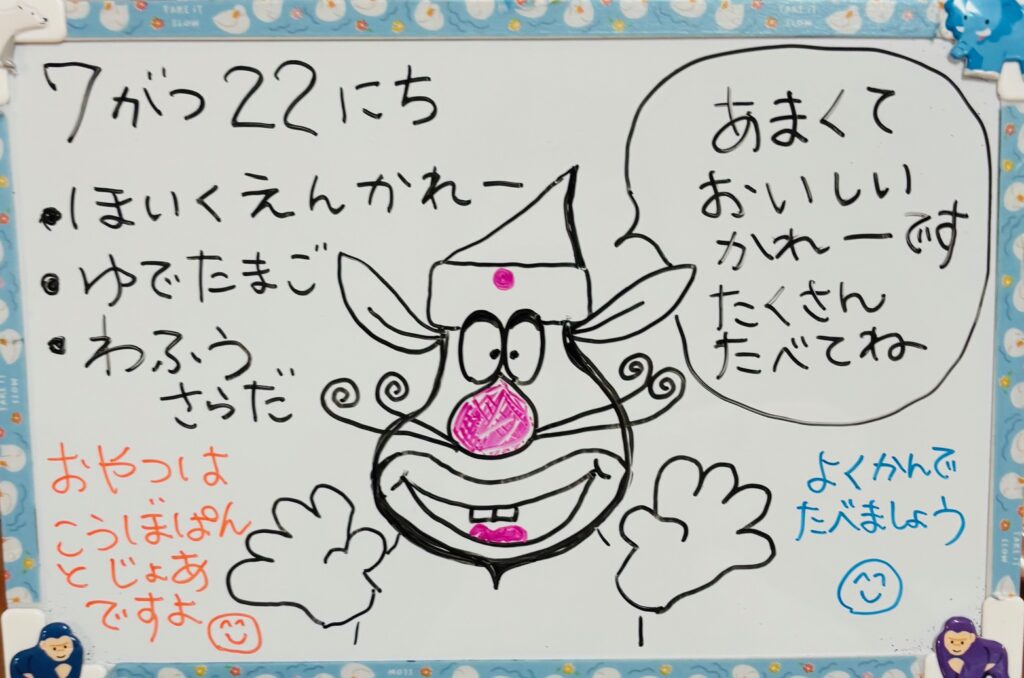 7がつ22にち
・ほいくえんかれー
・ゆでたまご
・わふう
さらだ
おやつは
こうぼぱん
とじょあ
ですよ
あまくて
おいしい
かれーです
たくさん
たべてね
よくかんで
たべましょう
TAKE IT
SLOW
TAKE IT
SLOW
TAKE IT
SLOW
TAKE IT
SLOW
MOSS